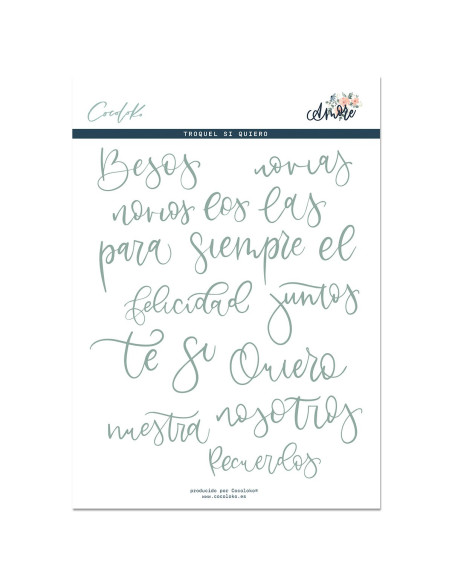 Cocoloko
Amore
TROQUEL SI QUIERO
Besos novias
novios los las
para siempre el
felicidad juntos
te si Quiero
nuestra nosotros
Recuerdos
producido por Cocoloko®
www.cocoloko.es